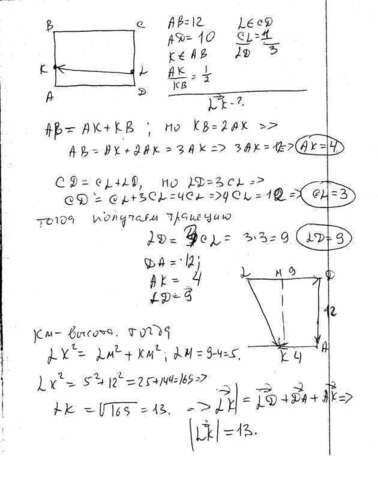 B C
K L
A D
AB=12 L∈CD
AD=10 CL/LD=1/3
K∈AB
AK/KB=1/2
LK-?
AB=AK+KB; но KB=2AK =>
AB=AK+2AK=3AK=>3AK=12=>AK=4
CD=CL+LD, но LD=3CL=>
CD=CL+3CL=4CL=>4CL=12=>CL=3
тогда получаем трапецию
LD=3CL=3·3=9 LD=9
DA=12;
AK=4
LD=9
L M 9 D
12
K 4 A
KM-высота. тогда
LK²=LM²+KM²; LM=9-4=5.
LK²=5²+12²=25+144=169=>
LK=√169=13. -> |LK|=LD+DA+AK=>
|LK|=13.